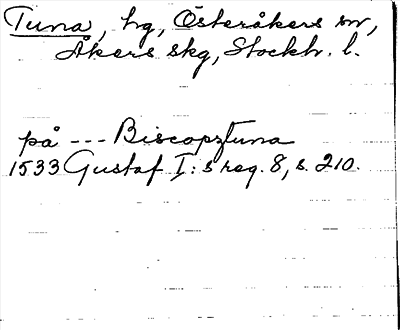 Tuna, hg, Österåkers sn,
Åkers skg, Stockh. l.
på --- Biscopztuna
1533 Gustaf I:s reg. 8, s. 210.